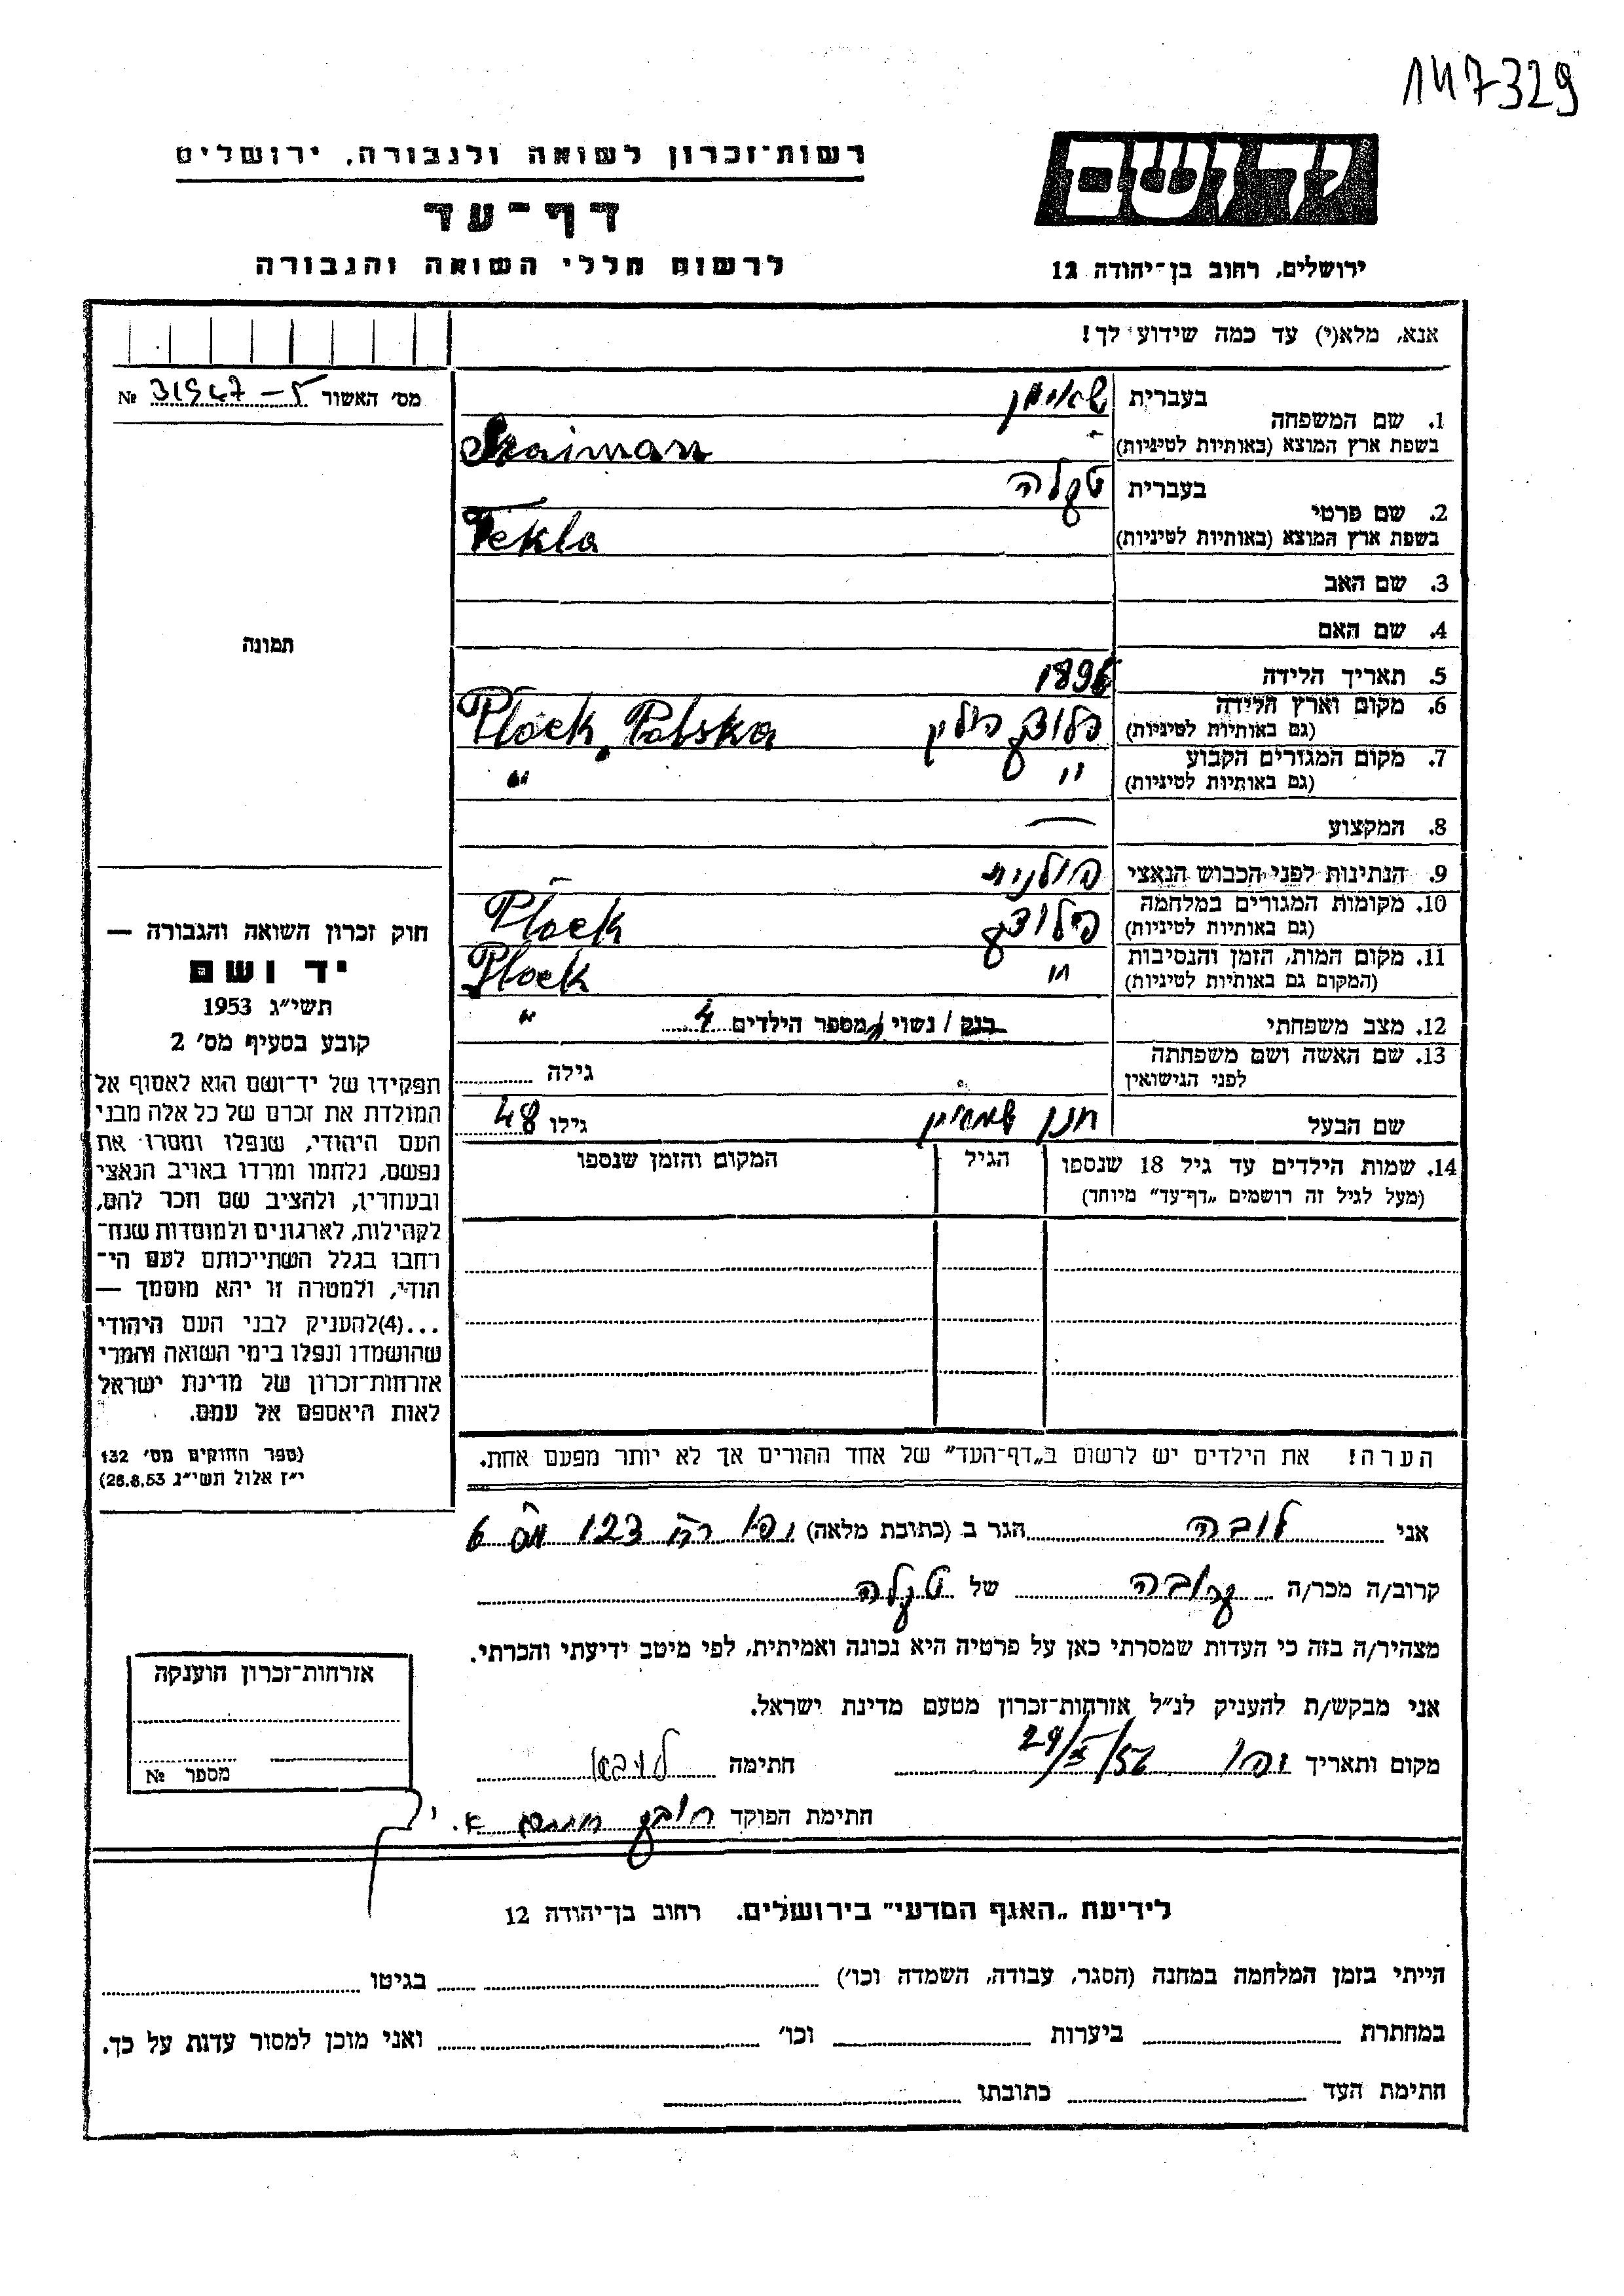 147329
רשות־זכרון לשואה ולגבורה, ירושלים
יד ושם
דף־עד
לרשום חללי השואה והגבורה
ירושלים, רחוב בן־יהודה 12
אנא, מלא(י) עד כמה שידוע לך!
מס׳ האשור № 31947-5
1. שם המשפחה
בעברית
בשפת ארץ המוצא (באותיות לטיניות) Szaiman
2. שם פרטי
בעברית טקלה
בשפת ארץ המוצא (באותיות לטיניות) Tekla
3. שם האב
4. שם האם
תמונה
5. תאריך הלידה
6. מקום וארץ הלידה פלוצק פולין Plock, Polska
(גם באותיות לטיניות)
7. מקום המגורים הקבוע " "
(גם באותיות לטיניות)
8. המקצוע —
9. הנתינות לפני הכבוש הנאצי פולנית
10. מקומות המגורים במלחמה פלוצק Plock
(גם באותיות לטיניות)
11. מקום המות, הזמן והנסיבות " Plock
(המקום גם באותיות לטיניות)
12. מצב משפחתי רווק / נשוי / מספר הילדים 4 "
13. שם האשה ושם משפחתה
לפני הנישואין
גילה
שם הבעל חנן גילו 48
14. שמות הילדים עד גיל 18 שנספו
(מעל לגיל זה רושמים „דף־עד" מיוחד)
הגיל
המקום והזמן שנספו
הערה! את הילדים יש לרשום ב„דף־העד" של אחד ההורים אך לא יותר מפעם אחת.
חוק זכרון השואה והגבורה —
יד ושם
תשי״ג 1953
קובע בסעיף מס׳ 2
תפקידו של יד־ושם הוא לאסוף אל
המולדת את זכרם של כל אלה מבני
העם היהודי, שנפלו ומסרו את
נפשם, נלחמו ומרדו באויב הנאצי
ובעוזריו, ולהציב שם וזכר להם,
לקהילות, לארגונים ולמוסדות שנח־
רבו בגלל השתייכותם לעם הי־
הודי, ולמטרה זו יהא מוסמך —
...(4)להעניק לבני העם היהודי
שהושמדו ונפלו בימי השואה והמרי
אזרחות־זכרון של מדינת ישראל
לאות היאספם אל עמם.
(ספר החוקים מס׳ 132
י״ז אלול תשי״ג 28.8.53)
אני לובה הגר ב (כתובת מלאה) 123
קרוב/ה מכר/ה קרובה של טקלה
מצהיר/ה בזה כי העדות שמסרתי כאן על פרטיה היא נכונה ואמיתית, לפי מיטב ידיעתי והכרתי.
אני מבקש/ת להעניק לנ״ל אזרחות־זכרון מטעם מדינת ישראל.
מקום ותאריך 29/X/56 חתימה
חתימת הפוקד
אזרחות־זכרון הוענקה
מספר №
לידיעת „האגף המדעי" בירושלים. רחוב בן־יהודה 12
הייתי בזמן המלחמה במחנה (הסגר, עבודה, השמדה וכו׳) בגיטו
במחתרת ביערות וכו׳ ואני מוכן למסור עדות על כך.
חתימת העד כתובתו